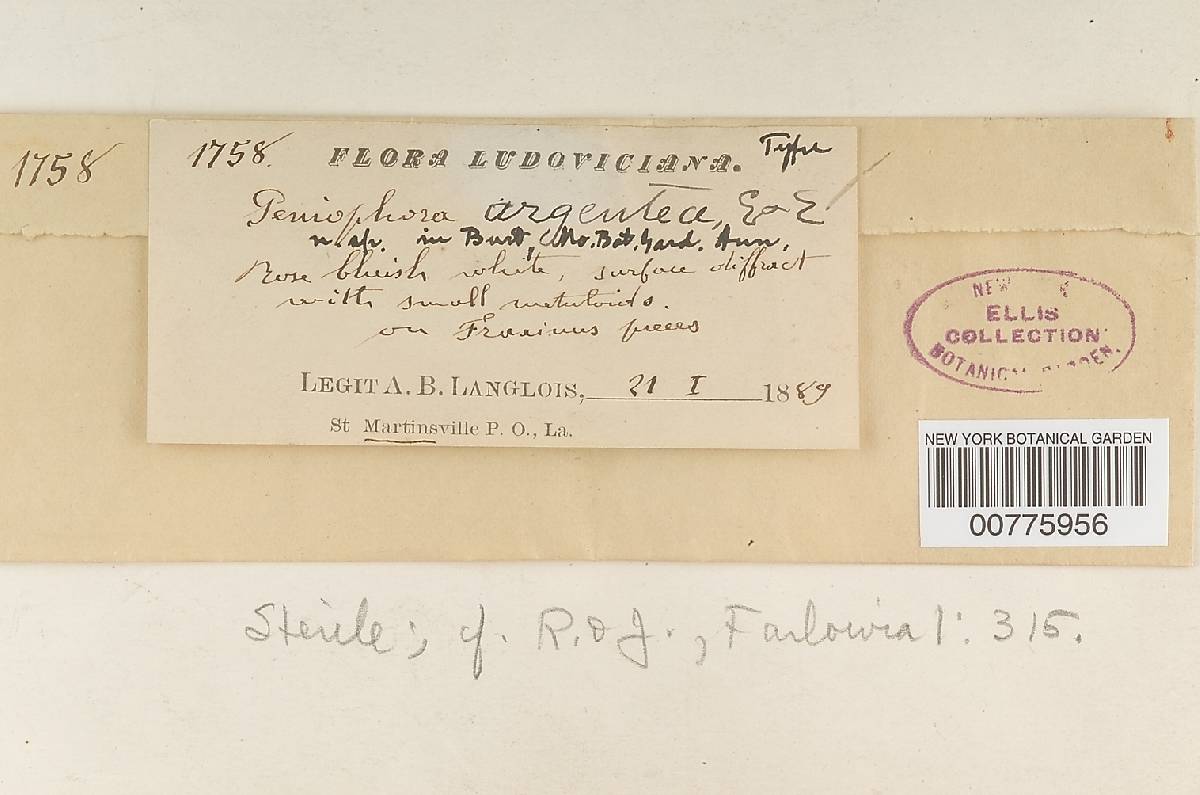 1758
1758. FLORA LUDOVICIANA. Type
Peniophora argentea, E & E
n. sp. in Burt, Mo. Bot. Gard. Ann.
Rose bluish white, surface diffract
with small metuloids.
on Fraxinus pieces
LEGIT A. B. LANGLOIS, 21 I 1889
St Martinsville P. O., La.
NEW
ELLIS
COLLECTION
BOTANICAL GARDEN.
NEW YORK BOTANICAL GARDEN
00775956
Sterile; cf. R. & J., Farlowia 1: 315.